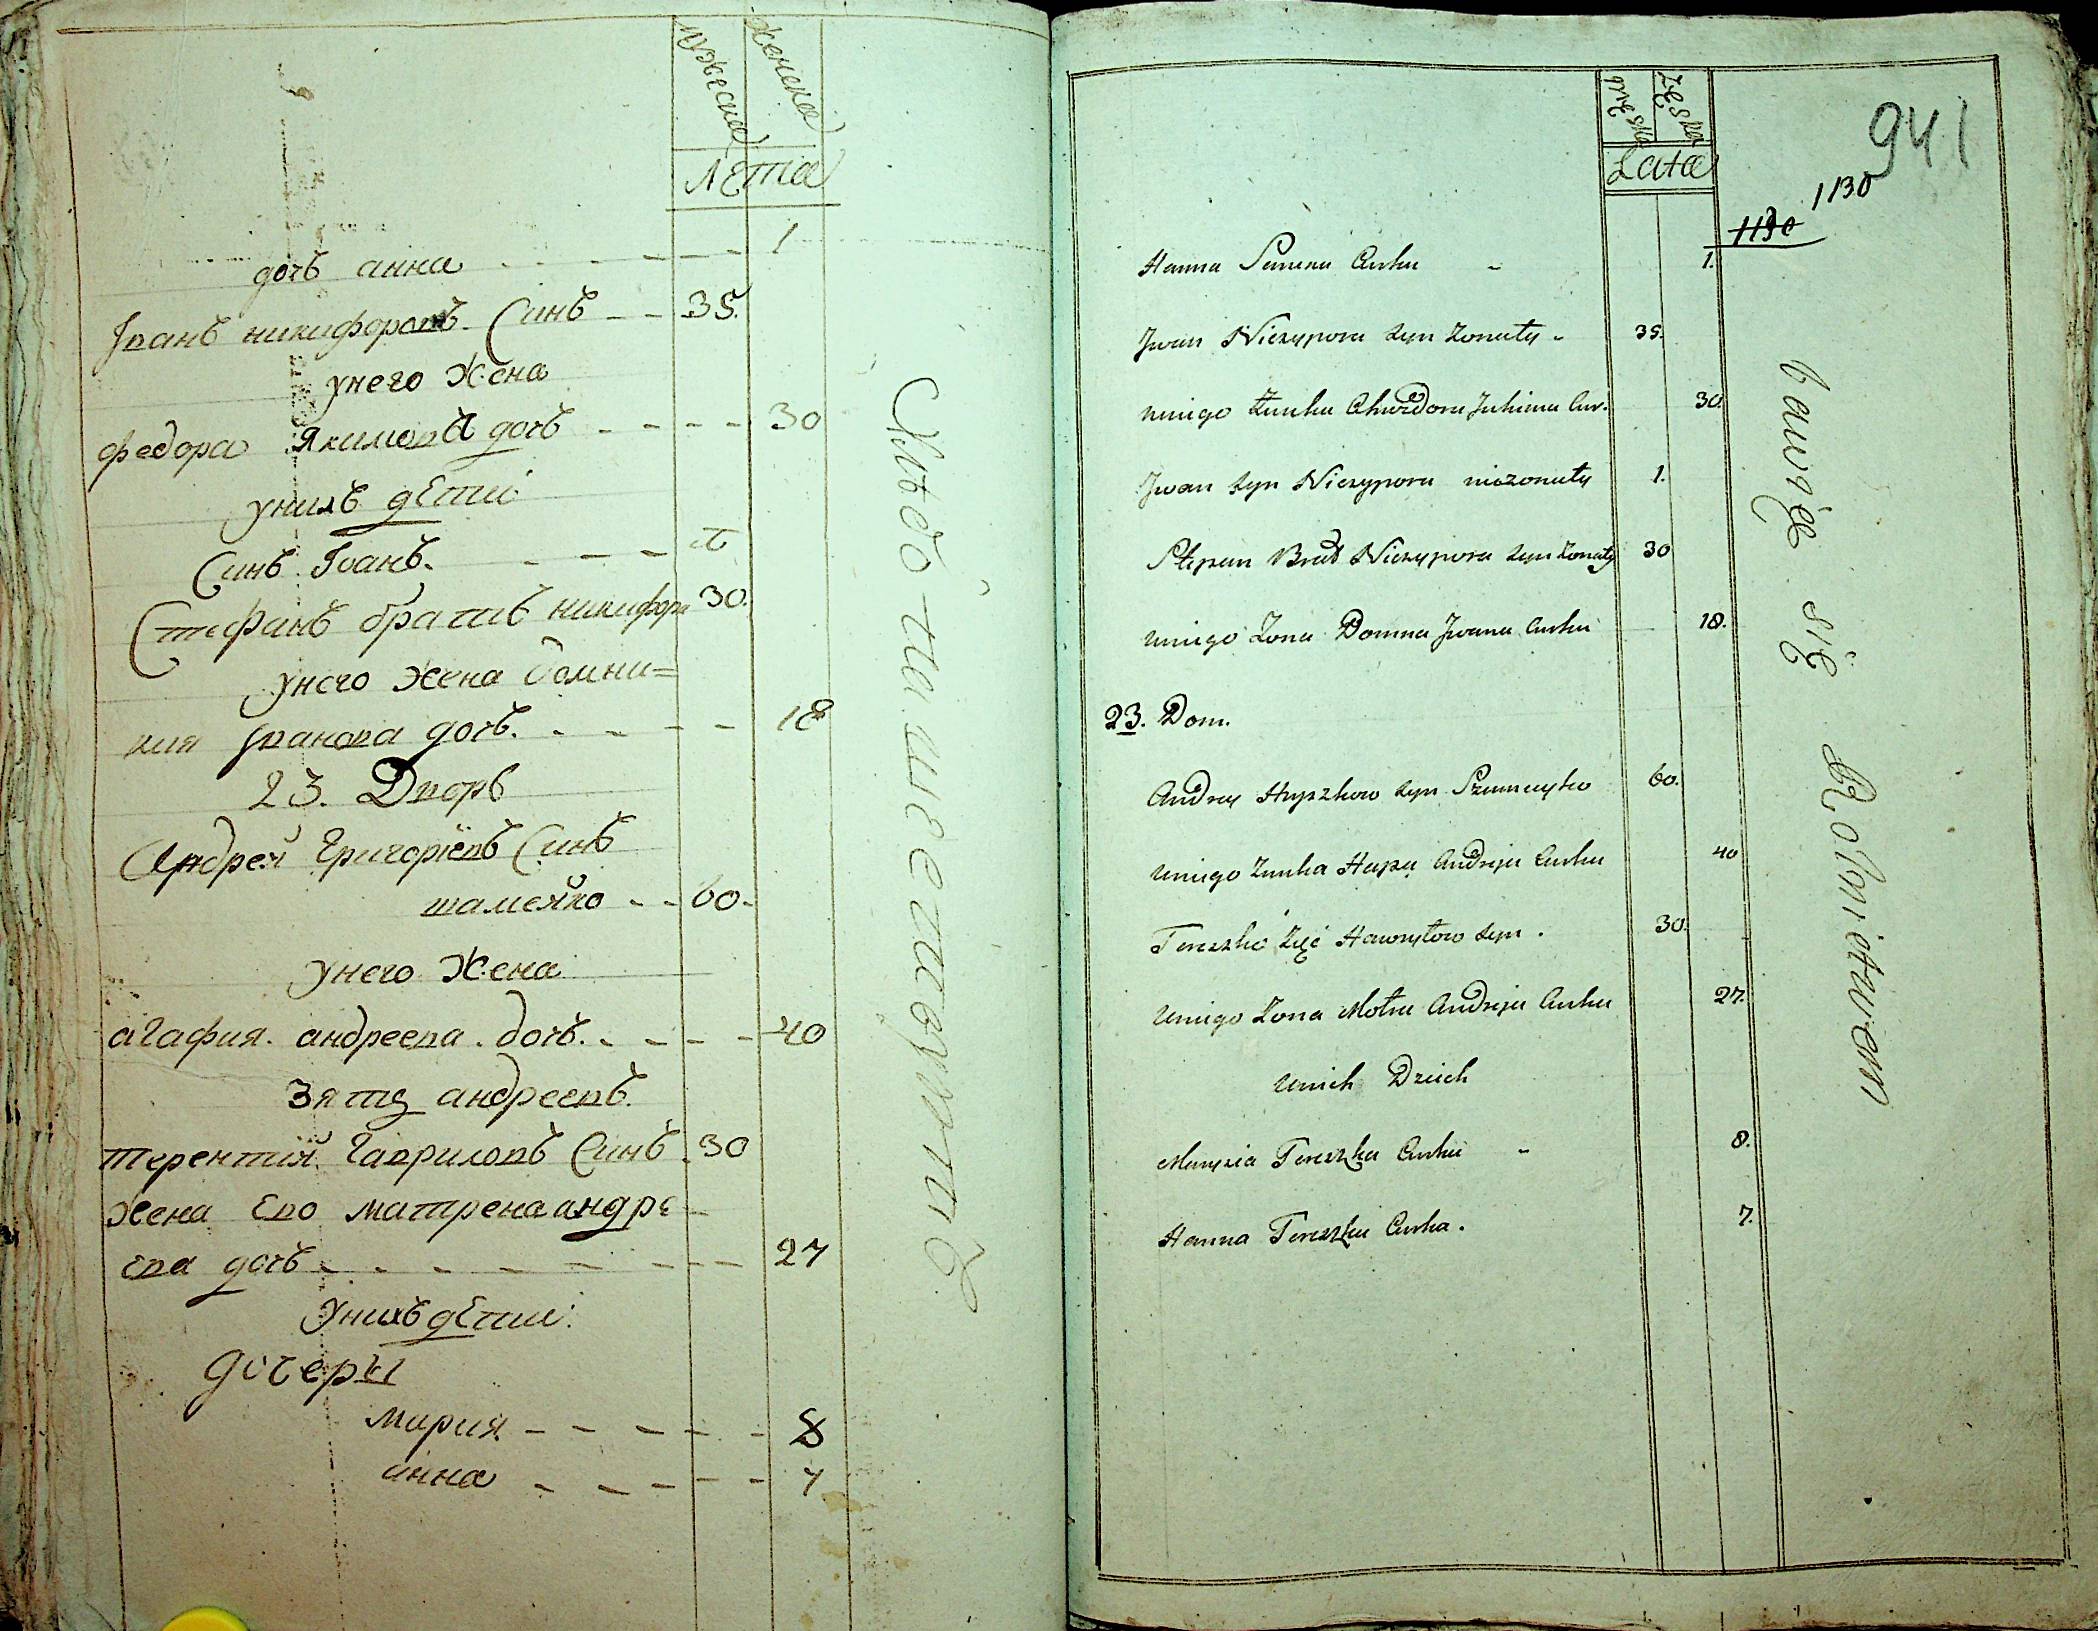 мужеска женска
лѣта
дочь анна 1
Іванъ никифоровъ Синъ 35.
унего жена
федора Якимова дочь 30
унихъ дѣти
Синъ Іванъ. 1
Стефанъ братъ никифора 30.
унего жена домни=
кия Іванова дочь. 18
23. Дворъ
Андрей Григоріевъ Синъ
шамейко 60.
унего жена
агафия. андреева. дочь. 40
Зять андреевъ.
терентій Гавриловъ Синъ 30
жена Ево матрена андре
ева дочь 27
унихъ дѣти:
дочеры
мария 8
анна 7
Męska Żeńska
Lata
941
1130
1130
Hanna Semena Curka 1.
Jwan Niczypora syn żonaty 35.
uniego Żunka Chwedora Juhima Cur. 30.
Jwan syn Niczypora nieżonaty 1.
Stepan Brat Niczypora syn żonaty 30
uniego Żona Domna Jwana Curka 18.
23. Dom.
Andrey Hryszkow syn Szumeyko 60.
uniego Żunka Hapa Andreja Curka 40
Tereszko Zięć Hawryłow syn. 30.
uniego Żona Motra Andreja Curka 27.
unich Dzieci
Marysia Tereszka Curka 8.
Hanna Tereszka Curka. 7.